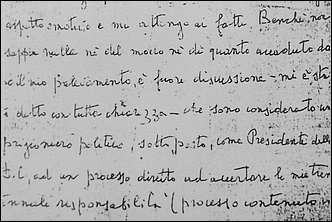 aspetto emotivo e mi attengo ai fatti. Benché non
sappia nulla né del modo né di quanto accaduto do
po il mio prelevamento, è fuori discussione - mi è sta
to detto con tutta chiarezza - che sono considerato un
prigioniero politico, sottoposto, come Presidente della
D.C., ad un processo diretto ad accertare le mie tren
tennali responsabilità (processo contenuto in